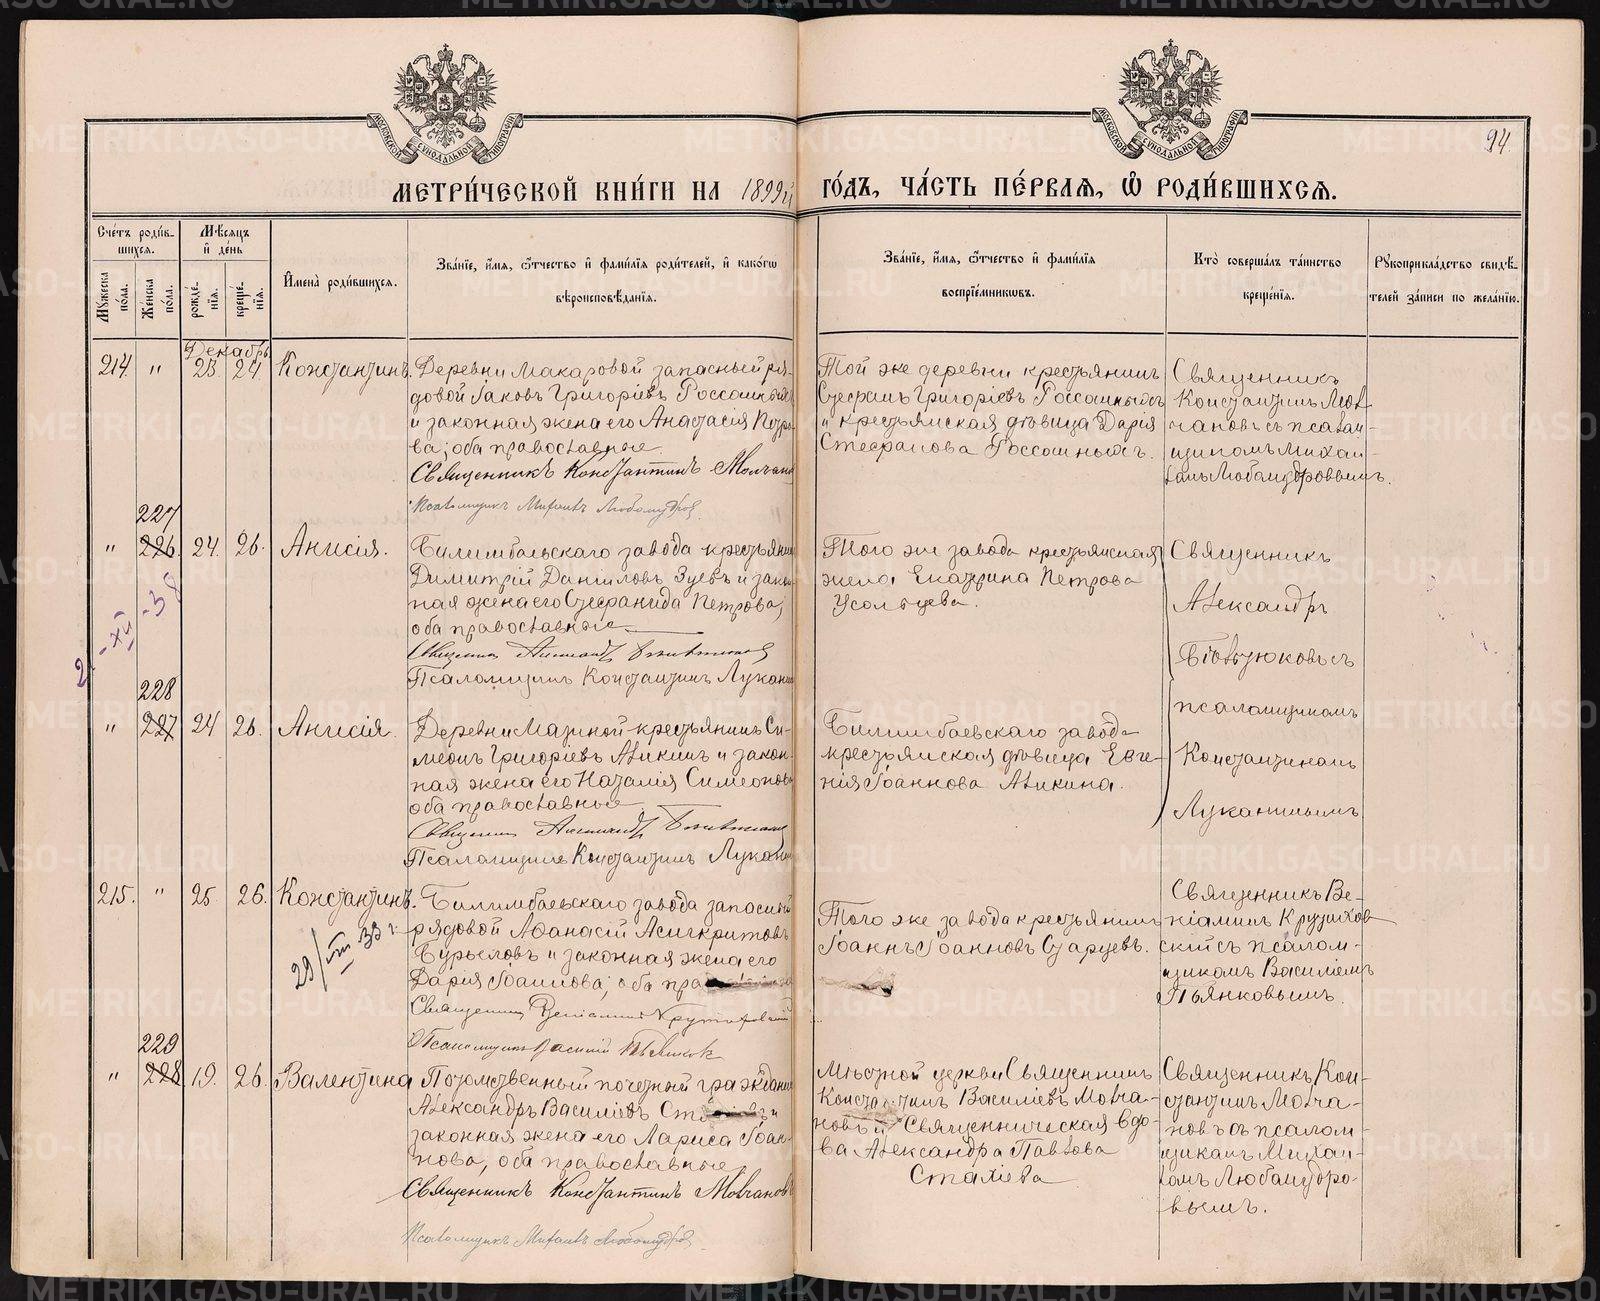 94.
МЕТРИ́ЧЕСКОЙ КНИ́ГИ НА 1899й ГО́ДЪ, ЧА́СТЬ ПЕ́РВАѦ, Ѽ РОДИ́ВШИХСѦ.
Сче́тъ роди́в-
шихсѧ.
Мꙋ́жеска по́ла.
Же́нска по́ла.
Мѣ́сѧцъ
и҆ де́нь
рожде́-
нїѧ.
креще́-
нїѧ.
И҆мена̀ роди́вшихсѧ.
Зва́нїе, и҆́мѧ, ѻ҆́тчество и҆ фами́лїѧ роди́телей, и҆ како́гѡ
вѣроисповѣ́данїѧ.
Зва́нїе, и҆́мѧ, ѻ҆́тчество и҆ фами́лїѧ
воспрїе́мникѡвъ.
Кто̀ соверша́лъ та́инство
креще́нїѧ.
Рꙋкоприкла́дство свидѣ́-
телей за́писи по жела́нїю.
Декабрь
214. " 23. 24. Константинъ.
Деревни Макаровой запасный ря-
довой Іаковъ Григоріевъ Россошныхъ
и законная жена его Анастасія Петро-
ва; оба православные
Священникъ Константинъ Молчановъ
Псаломщикъ Михаилъ Любомудровъ
Той же деревни крестьянинъ
Стефанъ Григоріевъ Россошныхъ
и крестьянская дѣвица Дарія
Стефанова Россошныхъ.
Священникъ
Константинъ Мол-
чановъ съ псалом-
щикомъ Михаи-
ломъ Любомудровымъ.
227
" 226. 24. 26. Анисія.
Билимбаевскаго завода крестьянинъ
Димитрій Даниловъ Зуевъ и закон-
ная жена его Стефанида Петрова;
оба православные
Священникъ Александръ
Псаломщикъ Константинъ Луканинъ
Того же завода крестьянская
жена Екатерина Петрова
Усольцева.
Священникъ
Александръ
съ
псаломщикомъ
Константиномъ
Луканинымъ
2 - XII - 38
228
" 227 24 26. Анисія.
Деревни Мазиной крестьянинъ Си-
меонъ Григоріевъ Аликинъ и закон-
ная жена его Наталія Симеонова
оба православные
Священникъ Александръ
Псаломщикъ Константинъ Луканинъ
Билимбаевскаго завода
крестьянская дѣвица Евге-
нія Іоаннова Аликина.
215. " 25 26. Константинъ.
29/VIII 33 г.
Билимбаевскаго завода запасный
рядовой Аѳанасій Асигкритовъ
Бурыловъ и законная жена его
Дарія Іоаннова; оба православные
Священникъ Веніаминъ
Псаломщикъ Василій Пьянковъ
Того же завода крестьянинъ
Іоаннъ Іоанновъ Старцевъ.
Священникъ Ве-
ніаминъ
съ псалом-
щикомъ Василіемъ
Пьянковымъ.
229
" 228 19. 26. Валентина
Потомственный почетный гражданинъ
Александръ Василіевъ и
законная жена его Лариса Іоан-
нова, оба православные
Священникъ Константинъ Молчановъ
Псаломщикъ Михаилъ Любомудровъ
Мѣстной церкви Священникъ
Константинъ Василіевъ Молча-
новъ и Священническая вдо-
ва Александра Павлова
Стахіева
Священникъ Кон-
стантинъ Молча-
новъ съ псалом-
щикомъ Михаи-
ломъ Любомудро-
вымъ.